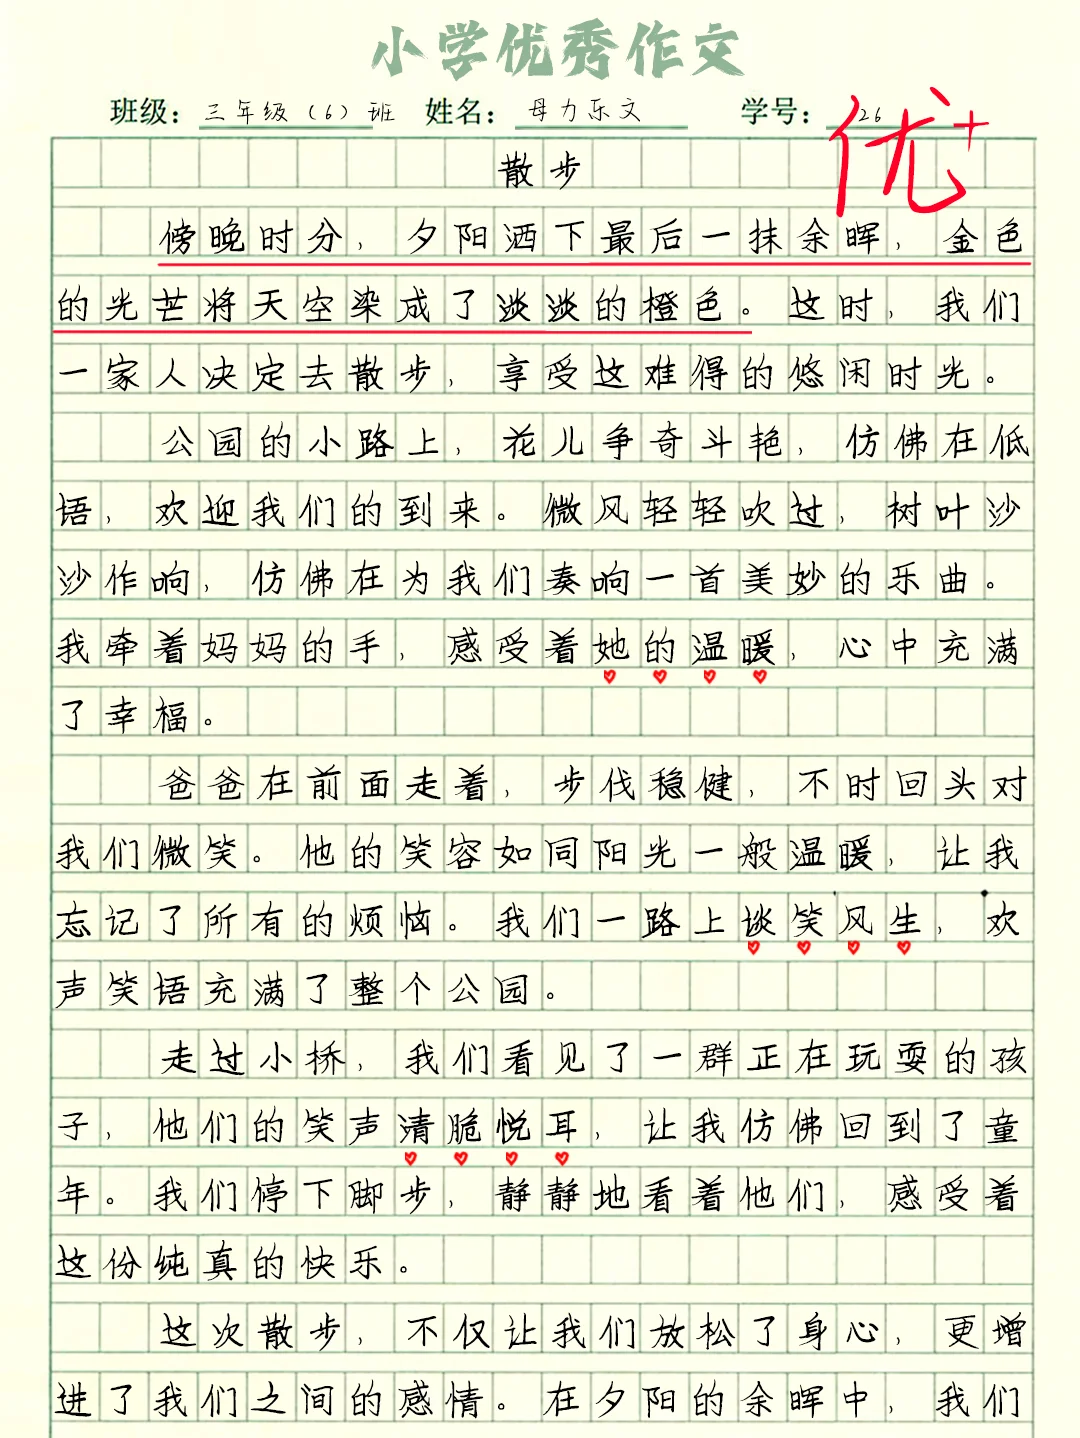 小学优秀作文
班级：三年级（6）班 姓名：母力乐文 学号：26
优+
散步
傍晚时分，夕阳洒下最后一抹余晖，金色
的光芒将天空染成了淡淡的橙色。这时，我们
一家人决定去散步，享受这难得的悠闲时光。
公园的小路上，花儿争奇斗艳，仿佛在低
语，欢迎我们的到来。微风轻轻吹过，树叶沙
沙作响，仿佛在为我们奏响一首美妙的乐曲。
我牵着妈妈的手，感受着她的温暖，心中充满
了幸福。
爸爸在前面走着，步伐稳健，不时回头对
我们微笑。他的笑容如同阳光一般温暖，让我
忘记了所有的烦恼。我们一路上谈笑风生，欢
声笑语充满了整个公园。
走过小桥，我们看见了一群正在玩耍的孩
子，他们的笑声清脆悦耳，让我仿佛回到了童
年。我们停下脚步，静静地看着他们，感受着
这份纯真的快乐。
这次散步，不仅让我们放松了身心，更增
进了我们之间的感情。在夕阳的余晖中，我们